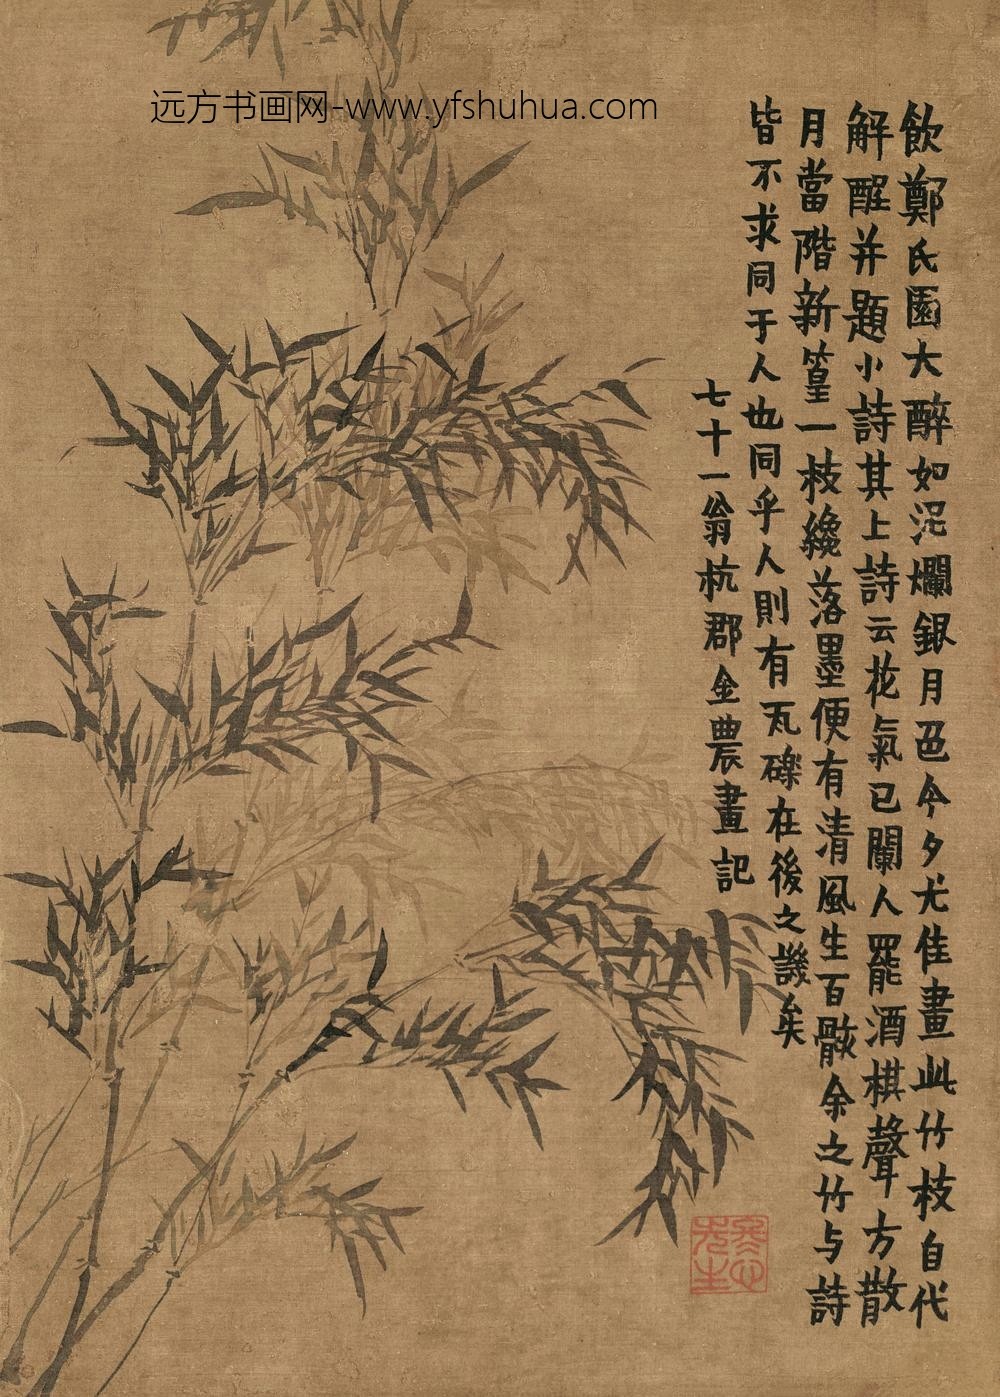 远方书画网-www.yfshuhua.com
飲鄭氏園大醉如泥爛銀月色今夕尤佳畫此竹枝自代
解酲并題小詩其上詩云花氣已闌人罷酒棋聲方散
月當階新篁一枝纔落墨便有清風生百骸余之竹与詩
皆不求同于人也同乎人則有瓦礫在後之譏矣
七十一翁杭郡金農畫記
冬心先生